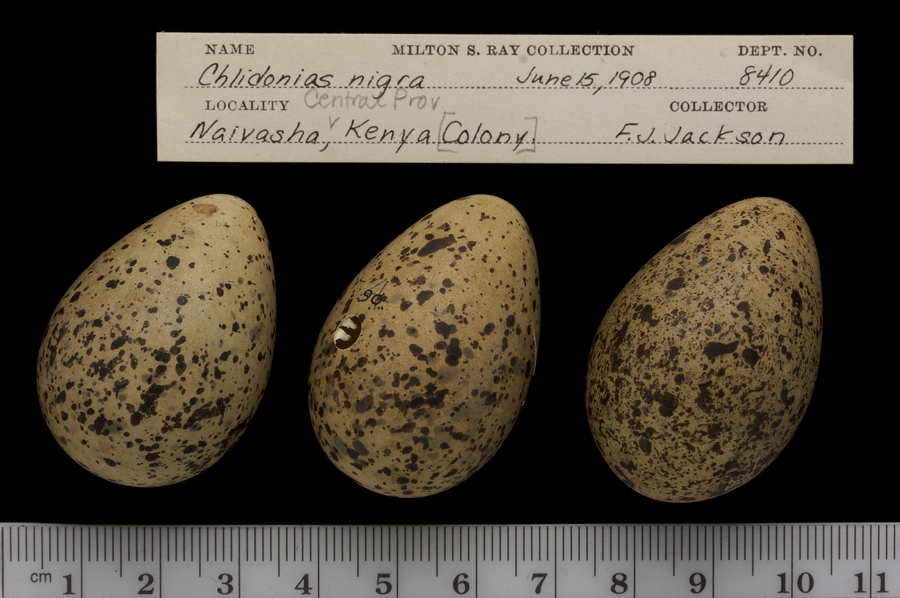 NAME MILTON S. RAY COLLECTION DEPT. NO.
Chlidonias nigra June 15, 1908 8410
LOCALITY Central Prov COLLECTOR
Naivasha, Kenya [Colony] F.J. Jackson
cm 1 2 3 4 5 6 7 8 9 10 11